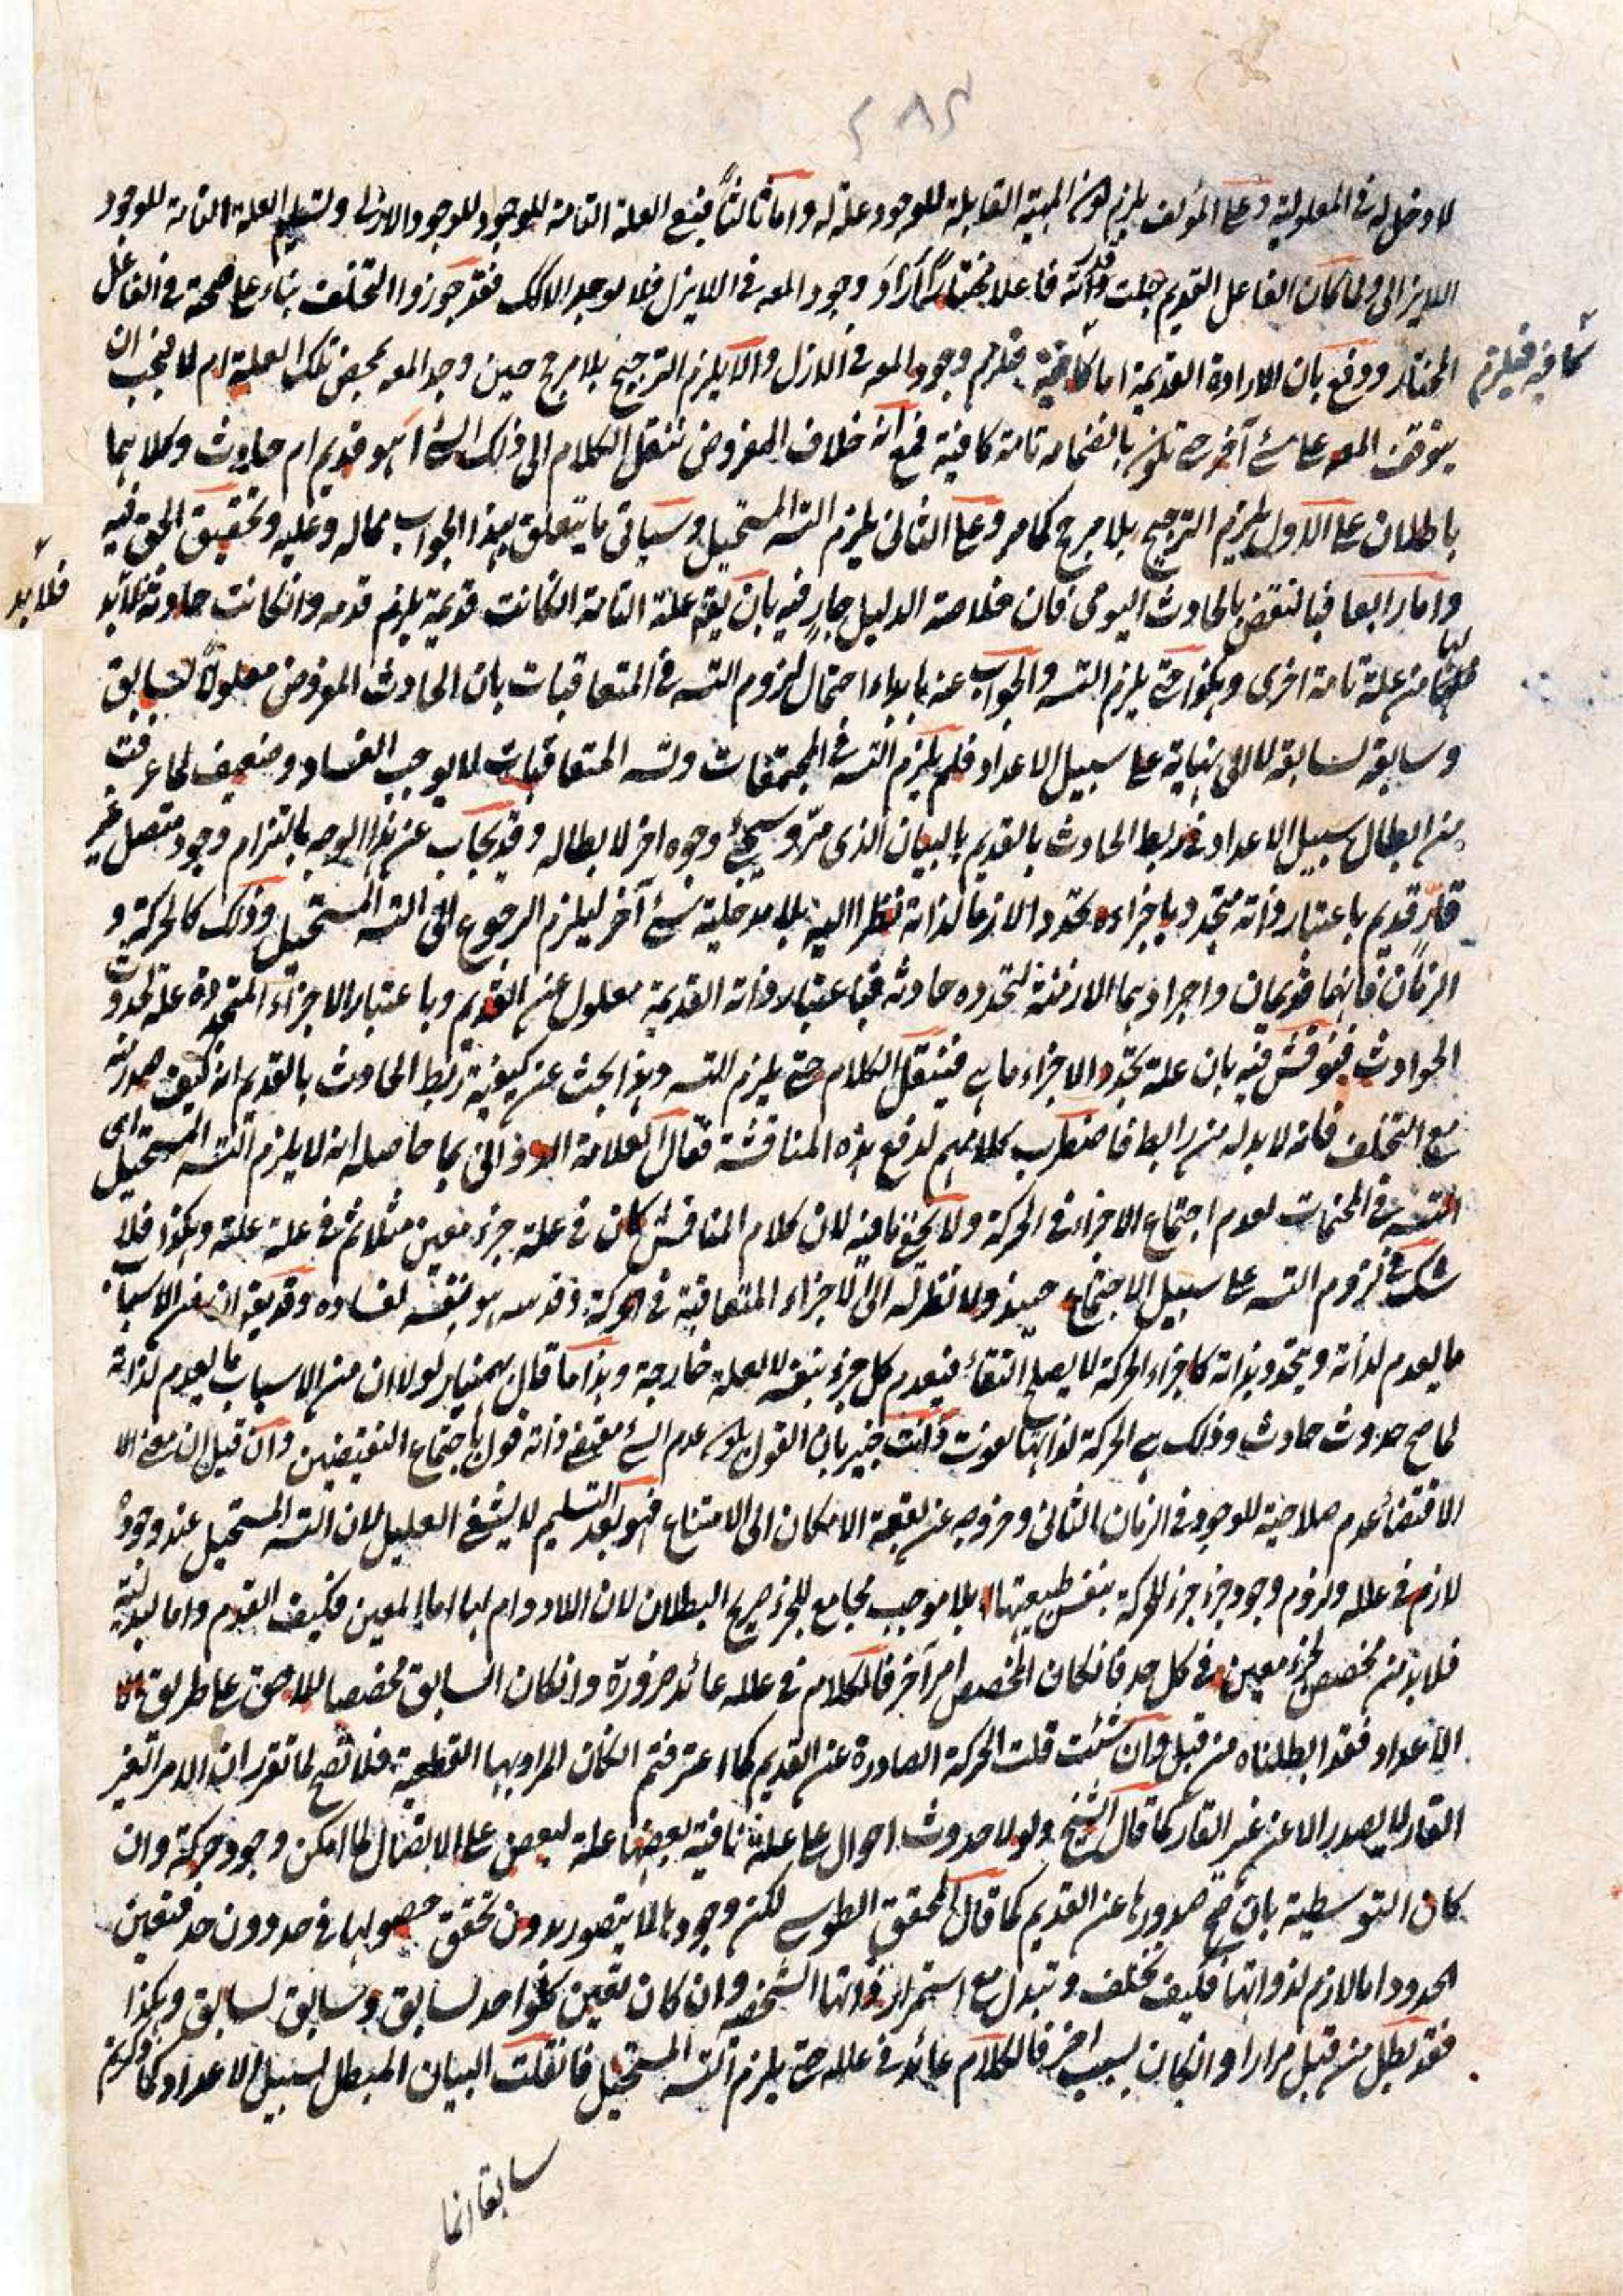 ٢٨٥
لا دخل له في المعلولية وعلى المؤلف يلزم كون المهية القابلة للوجود علة له واما ثالثا فبمنع العلة التامة للوجود للوجود الازلى وتسليم العلة التامة للوجود
اللايزالى ولما كان الفاعل القديم جلت قدرته فاعلا مختارا اراد وجود المعه في اللايزل فلا يوجد الا كك فقد جوزوا التخلف بناء على صحة في الفاعل
المختار ودفع بان الارادة القديمة اما كافية فيلزم وجود المعه في الازل والا يلزم الترجيح بلا مرجح حين وجد المعه بمحض تلك العلية ام لا فيجب ان
كافية فيلزم
يتوقف المعه على شئ آخر حتى تكون بانضمامه تامة كافية فمع انه خلاف المفروض ننقل الكلام الى ذلك الشئ اهو قديم ام حادث وكلاهما
باطلان على الاول يلزم الترجيح بلا مرجح كما مر وعلى الثانى يلزم التسه المستحيل وسياتى ما يتعلق بهذا الجواب بماله وعليه وتحقيق الحق فيه
واما رابعا فبالنقض بالحادث اليومى فان خلاصة الدليل جار فيه بان يقع علته التامة انكانت قديمة يلزم قدمه وانكانت حادثة فلابد
فلابد
لها من علة تامة اخرى وهكذا حتى يلزم التسه والجواب عنه بابداء احتمال لزوم التسه في المتعاقبات بان الحادث المفروض معلولا لسابق
وسابقه لسابقه لا الى نهاية على سبيل الاعداد فلم يلزم التسه في المجتمعات وتسه المتعاقبات لا يوجب الفساد وضعيف لما عرفت
من ابطال سبيل الاعداد في ربط الحادث بالقديم بالبيان الذى مر وسيجئ وجوه اخر لابطاله وقد يجاب عن هذا الوجه بالتزام وجود متصل غير
قار قديم باعتبار ذاته متجدد باجزاءه تجددا لازما لذاته نظرا اليه بلا مدخلية شئ آخر ليلزم الرجوع الى التسه المستحيل وذلك كالحركة و
الزمان فانهما قديمان واجزاؤهما الازمنة لتجدده حادثه فباعتبار ذاته القديمة معلول عن القديم وباعتبار الاجزاء المتجددة علة لحدوث
الحوادث فنوقش فيه بان علة تجدد الاجزاء ما هي فينقل الكلام حتى يلزم التسه وهذا بحث عن كيفية ربط الحادث بالقديم انه كيف صدر منه
مع التخلف فانه لا بد له من رابط فاضطرب كلامهم لدفع هذه المناقشة فقال العلامة الدوانى بما حاصله انه لا يلزم التسه المستحيل اى
التسه في المجتمعات لعدم اجتماع الاجزاء في الحركة ولا يخفى ما فيه لان كلام المناقش كان في علة جزء معين مثلا ثم في علة علته وهكذا فلا
شك في لزوم التسه على سبيل الاجتماع حينئذ ولا نظر له الى الاجزاء المتعاقبة في الحركة وقد سه هو بنفسه لفساده وقد يقع ان من الاسباب
ما يعدم لذاته ويتجدد بذاته كاجزاء الحركة لا يصلح البقاء فينعدم كل جزء بنفسه لا لعلة خارجة وهذا ما قال بهمنيار لولا ان من الاسباب ما يعدم لذاته
لما صح حدوث حادث وذلك هي الحركة لذاتها تفوت وانت خبير بان القول بكون عدم الشئ مقتضى ذاته قول باجتماع النقيضين وان قيل ان معنى الا
الاقتضاء عدم صلاحية للوجود في الزمان الثانى وخروجه عن بقعة الامكان الى الامتناع فهو بعد التسليم لا يشفى العليل لان التسه المستحيل عند وجوده
لازم في علله ولزوم وجود جزء جزء للحركة بنفس طبيعتها بلا موجب مجامع للجزء صريح البطلان لان اللادوام لها اما المعين فكيف القدم واما لبدلية
فلا بد من مخصص لجزء معين في كل حد فانكان المخصص امر آخر فالكلام في علله عائد ضرورة وانكان السابق مخصصا للاحق على طريق
الاعداد فقد ابطلناه من قبل وان شئت قلت الحركة الصادرة عن القديم كما اعترفتم انكان المراد بها القطعية فلا تصح لما تقرر ان الامر الغير
القار لا يصدر الا عن غير القار كما قال الشيخ ولولا حدوث احوال على علة ثانية بعضها علة لبعض على الاتصال لما امكن وجود حركة وان
كان التوسطية بان صح صدورها عن القديم كما قال المحقق الطوسى لكن وجودها لا يتصور بدون تحقق حصولها في حد دون حد فتعين
الحدود اما لازم لذواتها فكيف تختلف وتبدل مع استمرار ذاتها الشخصه وان كان تعين كل واحد لسابق وسابق لسابق وهكذا
فقد بطل من قبل مرارا وانكان لسبب اخر فالكلام عائد في علله حتى يلزم التسه المستحيل فانقلت البيان المبطل لسبيل الاعداد كما ذكرتم
سابقا انما